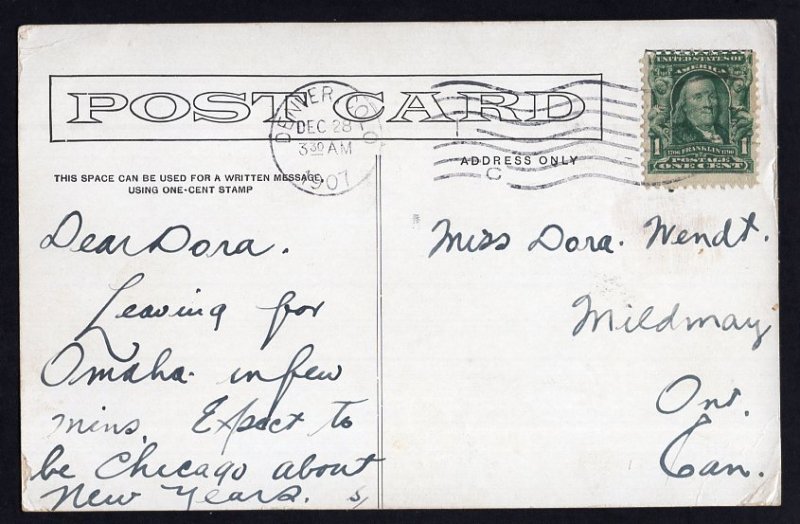 POST CARD
DENVER COLO
DEC 28
3 30 AM
1907
C
UNITED STATES OF
AMERICA
1 1
FRANKLIN
POSTAGE
ONE CENT
THIS SPACE CAN BE USED FOR A WRITTEN MESSAGE,
USING ONE-CENT STAMP
ADDRESS ONLY
Dear Dora.
Leaving for
Omaha. in few
mins. Expect to
be Chicago about
New Years.
Miss Dora. Wendt.
Mildmay
Ont.
Can.